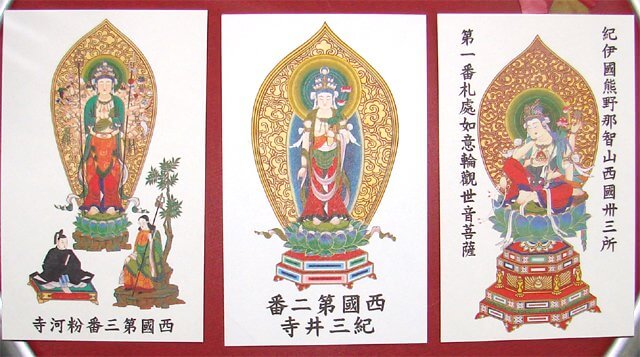 紀伊國熊野那智山西國卅三所
第一番札處如意輪觀世音菩薩
西國第二番
紀三井寺
西國第三番粉河寺